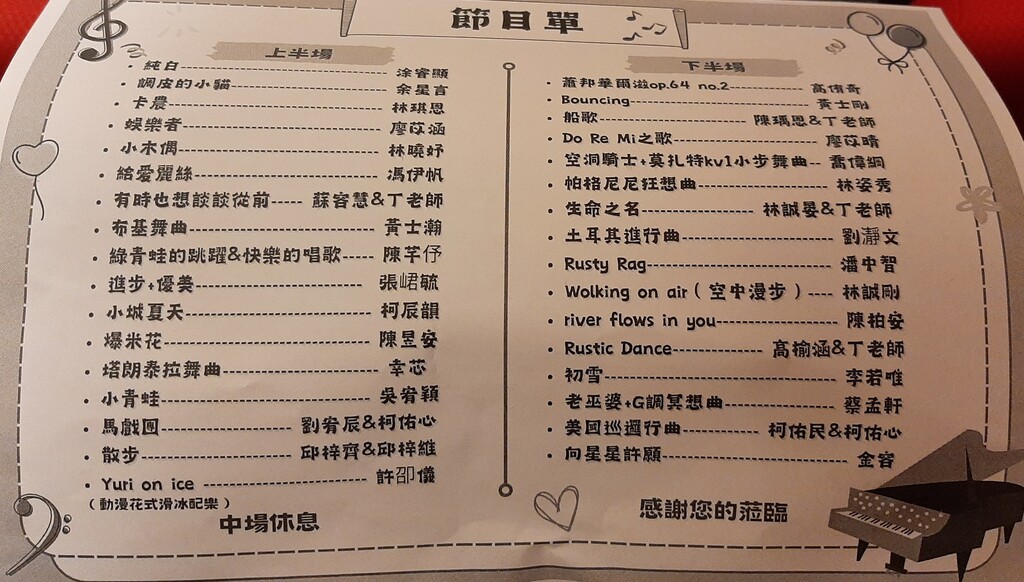 節目單
上半場
純白--------------------涂睿顯
調皮的小貓--------------------余星言
卡農--------------------林琪恩
娛樂者--------------------廖苡涵
小木偶--------------------林曉妤
給愛麗絲--------------------馮伊帆
有時也想談談從前-----蘇容慧&丁老師
布基舞曲--------------------黃士瀚
綠青蛙的跳躍&快樂的唱歌-----陳芊伃
進步+優美--------------------張峮毓
小城夏天--------------------柯辰韻
爆米花--------------------陳昱安
塔朗泰拉舞曲--------------------幸芯
小青蛙--------------------吳宥穎
馬戲團--------------------劉宥辰&柯佑心
散步--------------------邱梓齊&邱梓維
Yuri on ice --------------------許卲儀
(動漫花式滑冰配樂)
中場休息
下半場
蕭邦華爾滋op.64 no.2--------------高侑奇
Bouncing--------------------黃士剛
船歌--------------------陳瑀恩&丁老師
Do Re Mi之歌--------------------廖苡晴
空洞騎士+莫扎特kv1小步舞曲--喬偉綱
帕格尼尼狂想曲--------------------林姿秀
生命之名--------------------林誠晏&丁老師
土耳其進行曲--------------------劉瀞文
Rusty Rag--------------------潘中智
Wolking on air(空中漫步)----林誠剛
river flows in you---------------陳柏安
Rustic Dance-----------高榆涵&丁老師
初雪--------------------李若唯
老巫婆+G調冥想曲--------------蔡孟軒
美國巡邏行曲----------柯佑民&柯佑心
向星星許願--------------------金容
感謝您的蒞臨